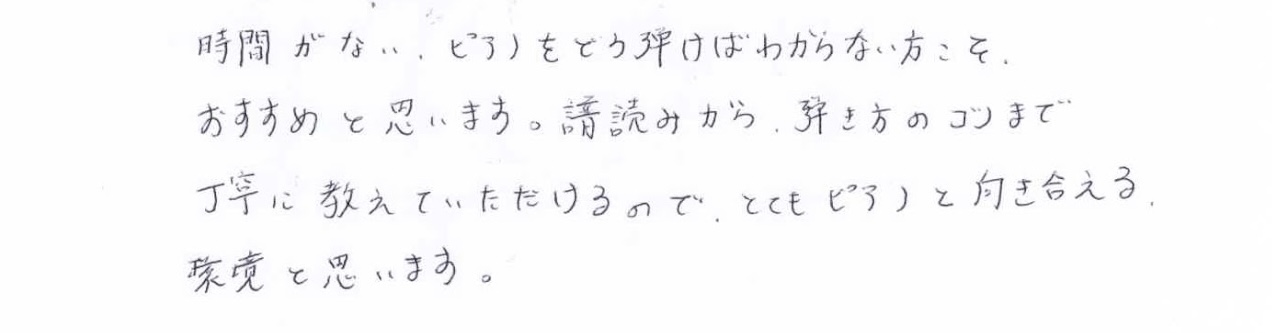 時間がない、ピアノをどう弾けばわからない方こそ、
おすすめと思います。譜読みから、弾き方のコツまで
丁寧に教えていただけるので、とてもピアノと向き合える、
環境と思います。